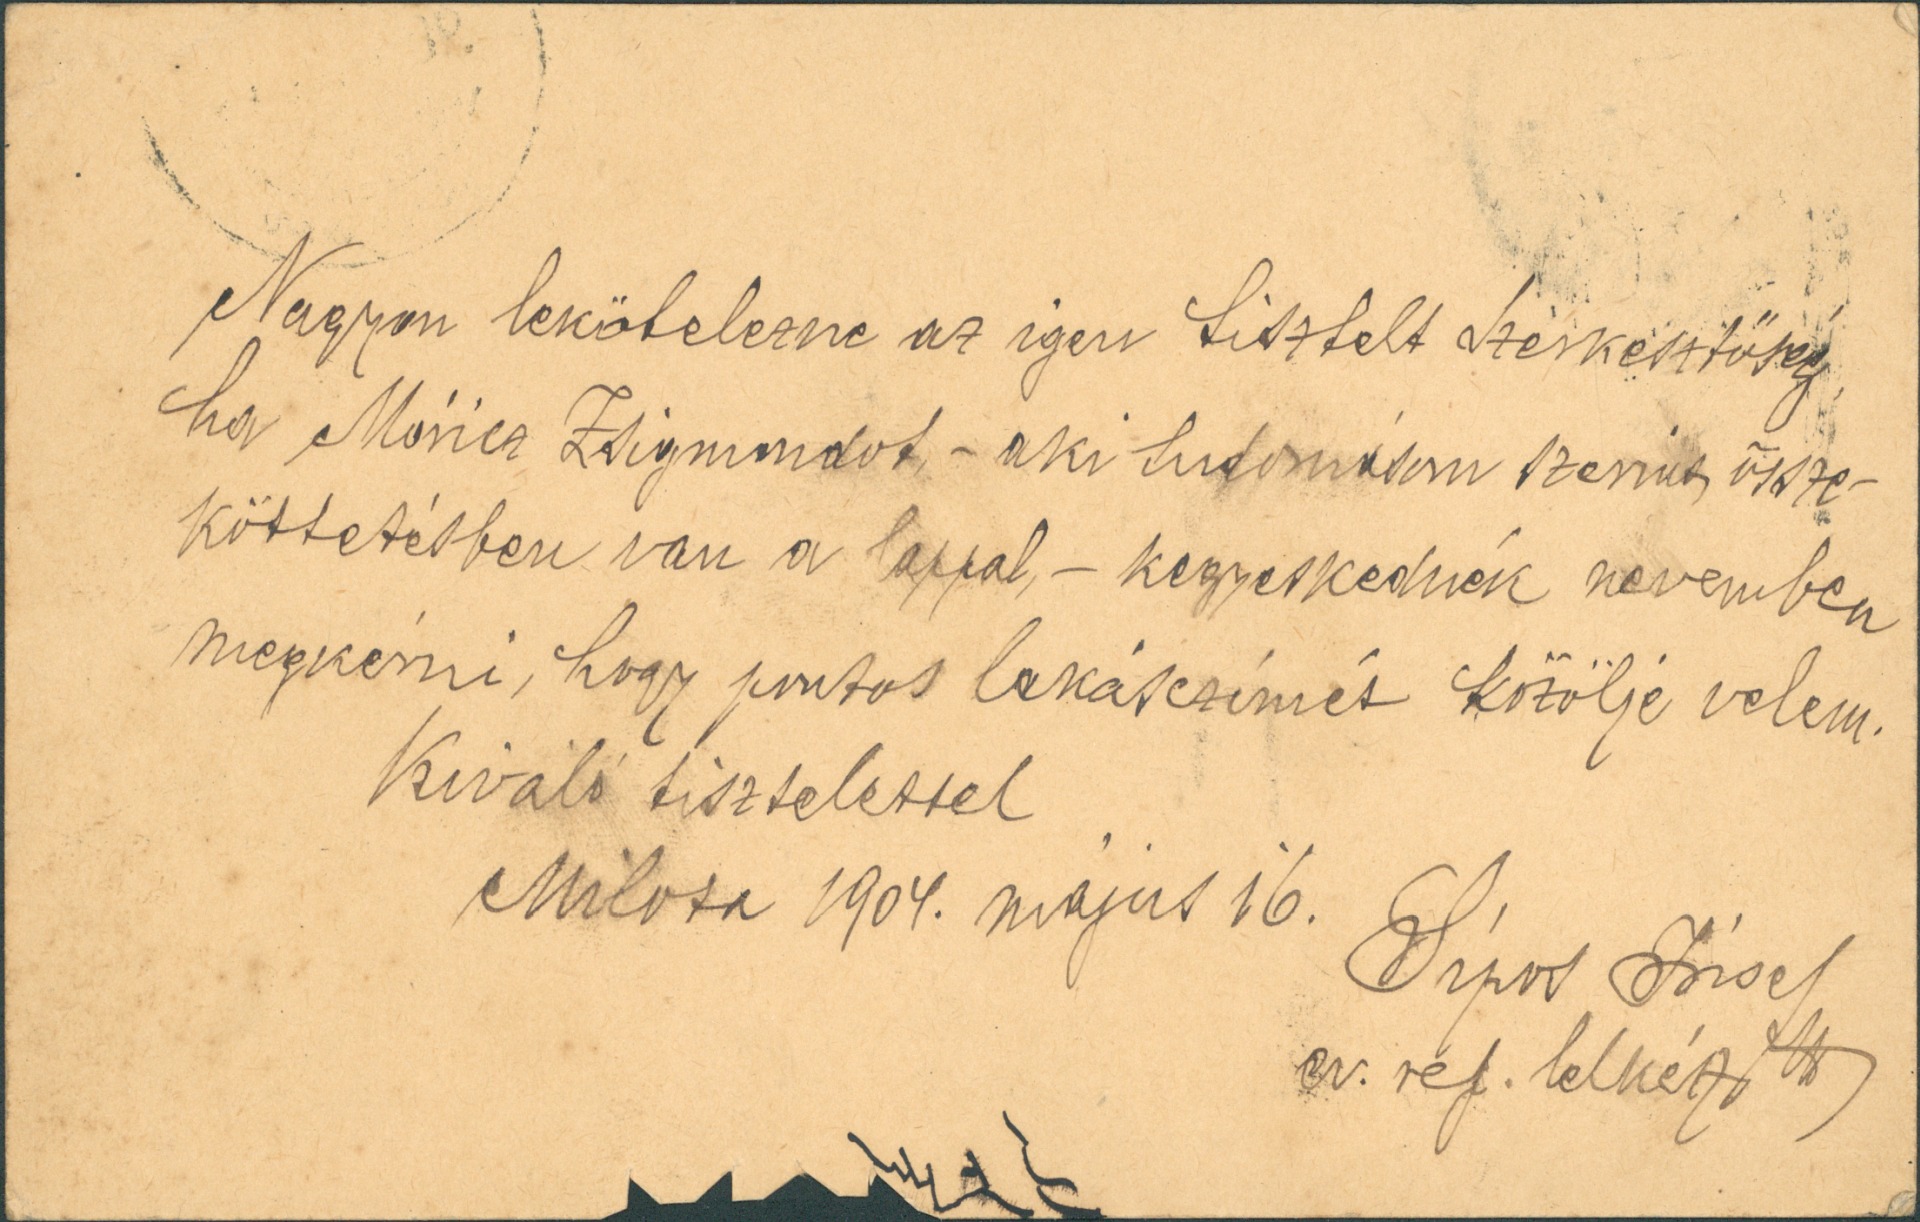 Nagyon lekötelezne az igen tisztelt Szerkesztőség,
ha Móricz Zsigmondot, – aki tudomásom szerint össze-
köttetésben van a lappal, – kegyeskednék nevemben
megkérni, hogy pontos lakásczímét közölje velem.
Kiváló tisztelettel
Milota 1904. május 16.
Sípos József
ev. ref. lelkész